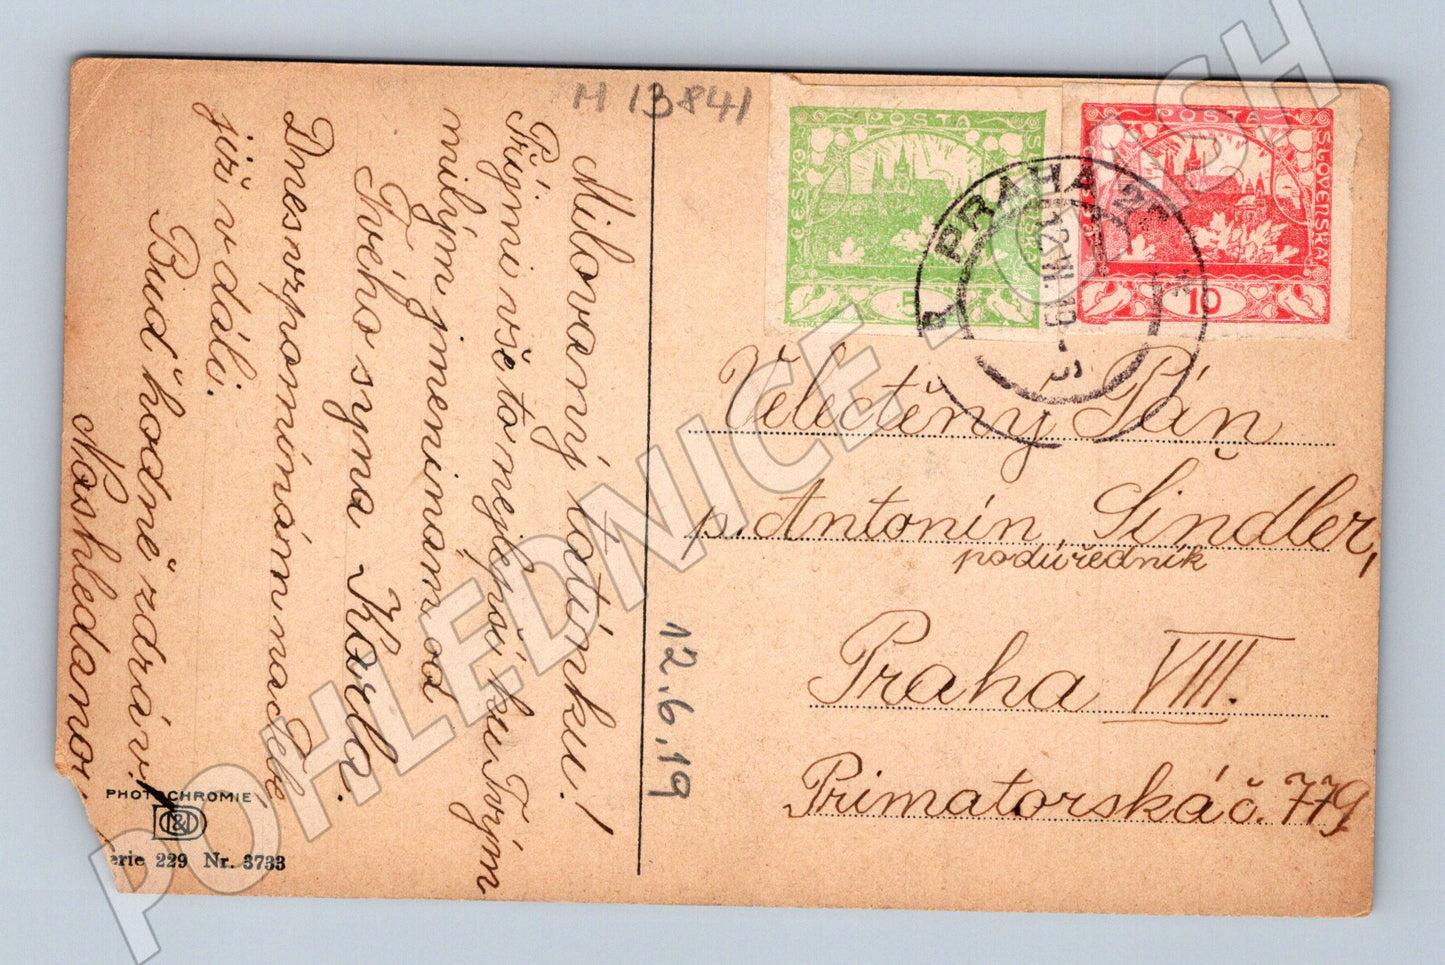 M 13841
Milovaný tatínku!
Přijmi vše to nejlepší ku Tvým
milým jmeninám od
Tvého syna Karla.
Dnes vzpomínám na Tebe
již v dáli.
Buď hodně zdráv!
Nashledanou
PHOTOCHROMIE
erie 229 Nr. 3733
12.6.19
POSTA
ČESKO
5
POSTA
SLOVENSKÁ
10
PRAHA 2
12.VI.19
Velectěný Pán
p. Antonín Šindler,
podúředník
Praha VIII.
Primatorská č. 779
POHLEDNICE